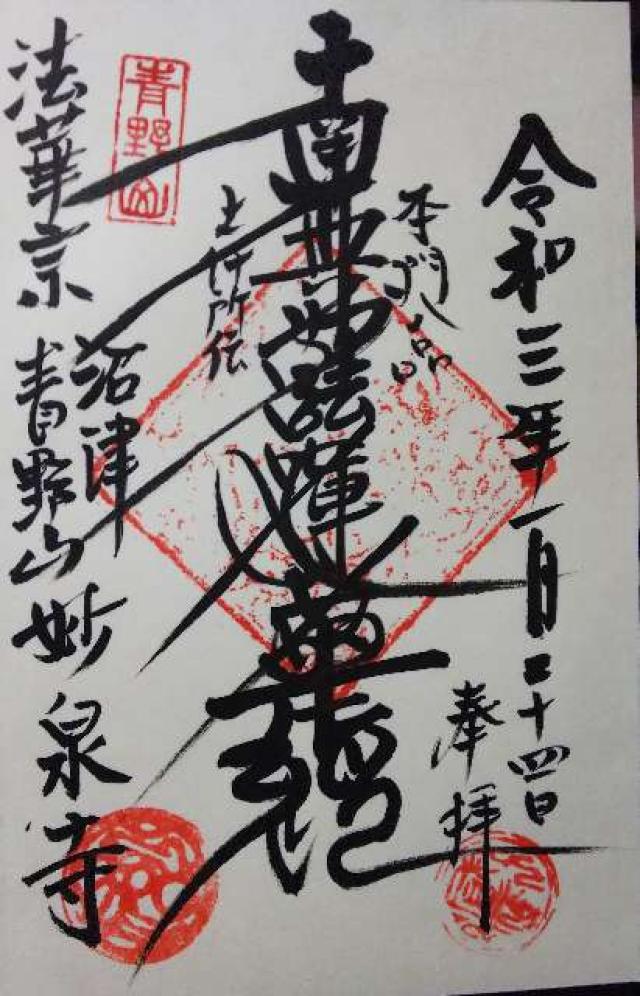 令和三年一月二十四日
奉拝
本門八品
南無妙法蓮華経
上行所伝
青野山
沼津
法華宗 青野山 妙泉寺